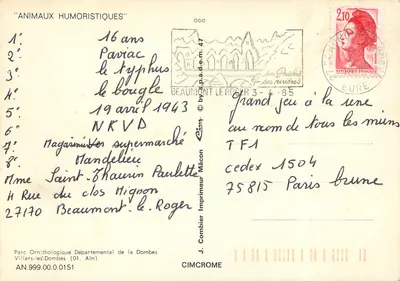 "ANIMAUX HUMORISTIQUES"
1° 16 ans
2° Paviac
3° le typhus
4° le bougle
5° 19 avril 1943
6° NKVD
7° supermarché
8° Mandelieu
Mme Saint-Thaurin Paulette
4 Rue du clos Mignon
27170 Beaumont-le-Roger
Parc Ornithologique Départemental de la Dombes
Villars-les-Dombes (01. Ain)
AN.999.00.0.0151
J. Combier Imprimeur Mâcon
© by s.p.a.d.e.m. 47
CIMCROME
BEAUMONT LE ROGER 3-4-85
ses ruines
EURE
2,10
Grand jeu à la une
au nom de tous les miens
TF1
cedex 1504
75815 Paris brune